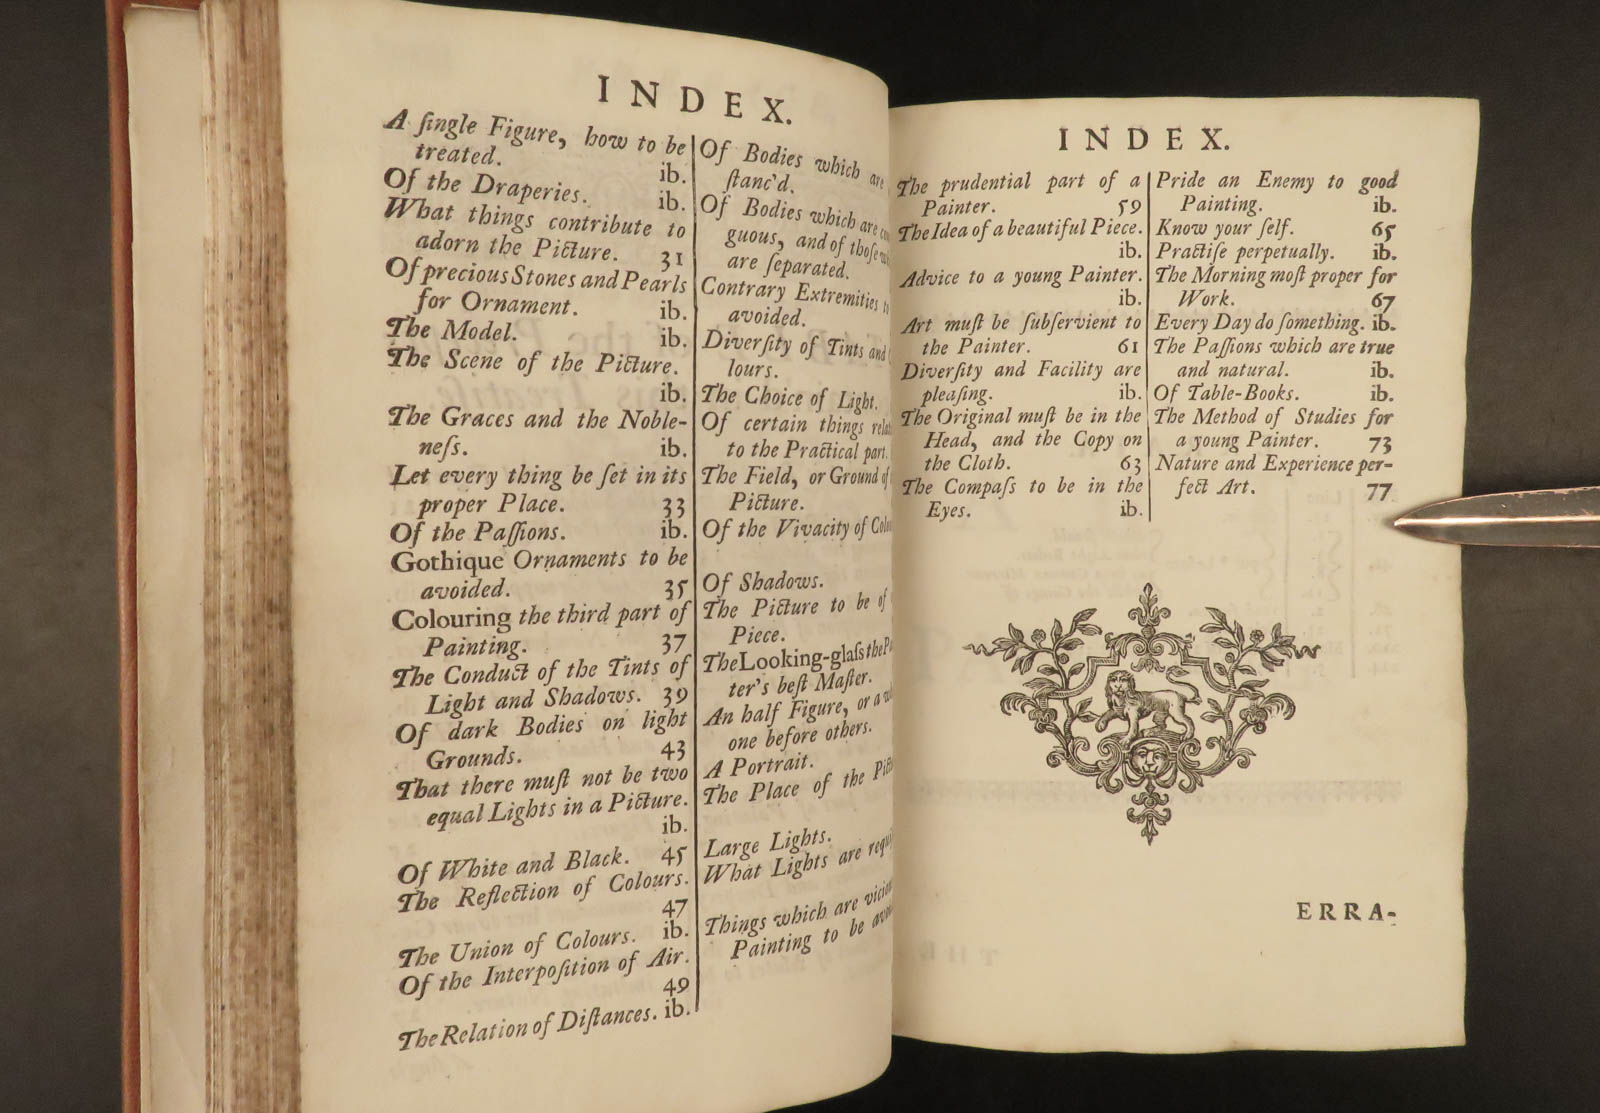 INDEX.
A ſingle Figure, how to be
treated. ib.
Of the Draperies. ib.
What things contribute to
adorn the Picture. 31
Of precious Stones and Pearls
for Ornament. ib.
The Model. ib.
The Scene of the Picture.
ib.
The Graces and the Noble-
neſs. ib.
Let every thing be ſet in its
proper Place. 33
Of the Paſſions. ib.
Gothique Ornaments to be
avoided. 35
Colouring the third part of
Painting. 37
The Conduct of the Tints of
Light and Shadows. 39
Of dark Bodies on light
Grounds. 43
That there muſt not be two
equal Lights in a Picture.
ib.
Of White and Black. 45
The Reflection of Colours.
47
The Union of Colours. ib.
Of the Interpoſition of Air.
49
The Relation of Diſtances. ib.
Of Bodies which are
ſtanc'd.
Of Bodies which are
guous, and of thoſe
are ſeparated.
Contrary Extremities
avoided.
Diverſity of Tints and
lours.
The Choice of Light.
Of certain things
to the Practical part.
The Field, or Ground of
Picture.
Of the Vivacity of
Of Shadows.
The Picture to be of
Piece.
The Looking-glaſs the
ter's beſt Maſter.
An half Figure, or a
one before others.
A Portrait.
The Place of the
Large Lights.
What Lights are
Things which are
Painting to be
INDEX.
The prudential part of a
Painter. 59
The Idea of a beautiful Piece.
ib.
Advice to a young Painter.
ib.
Art muſt be ſubſervient to
the Painter. 61
Diverſity and Facility are
pleaſing. ib.
The Original muſt be in the
Head, and the Copy on
the Cloth. 63
The Compaſs to be in the
Eyes. ib.
Pride an Enemy to good
Painting. ib.
Know your ſelf. 65
Practiſe perpetually. ib.
The Morning moſt proper for
Work. 67
Every Day do ſomething. ib.
The Paſſions which are true
and natural. ib.
Of Table-Books. ib.
The Method of Studies for
a young Painter. 73
Nature and Experience per-
fect Art. 77
ERRA-